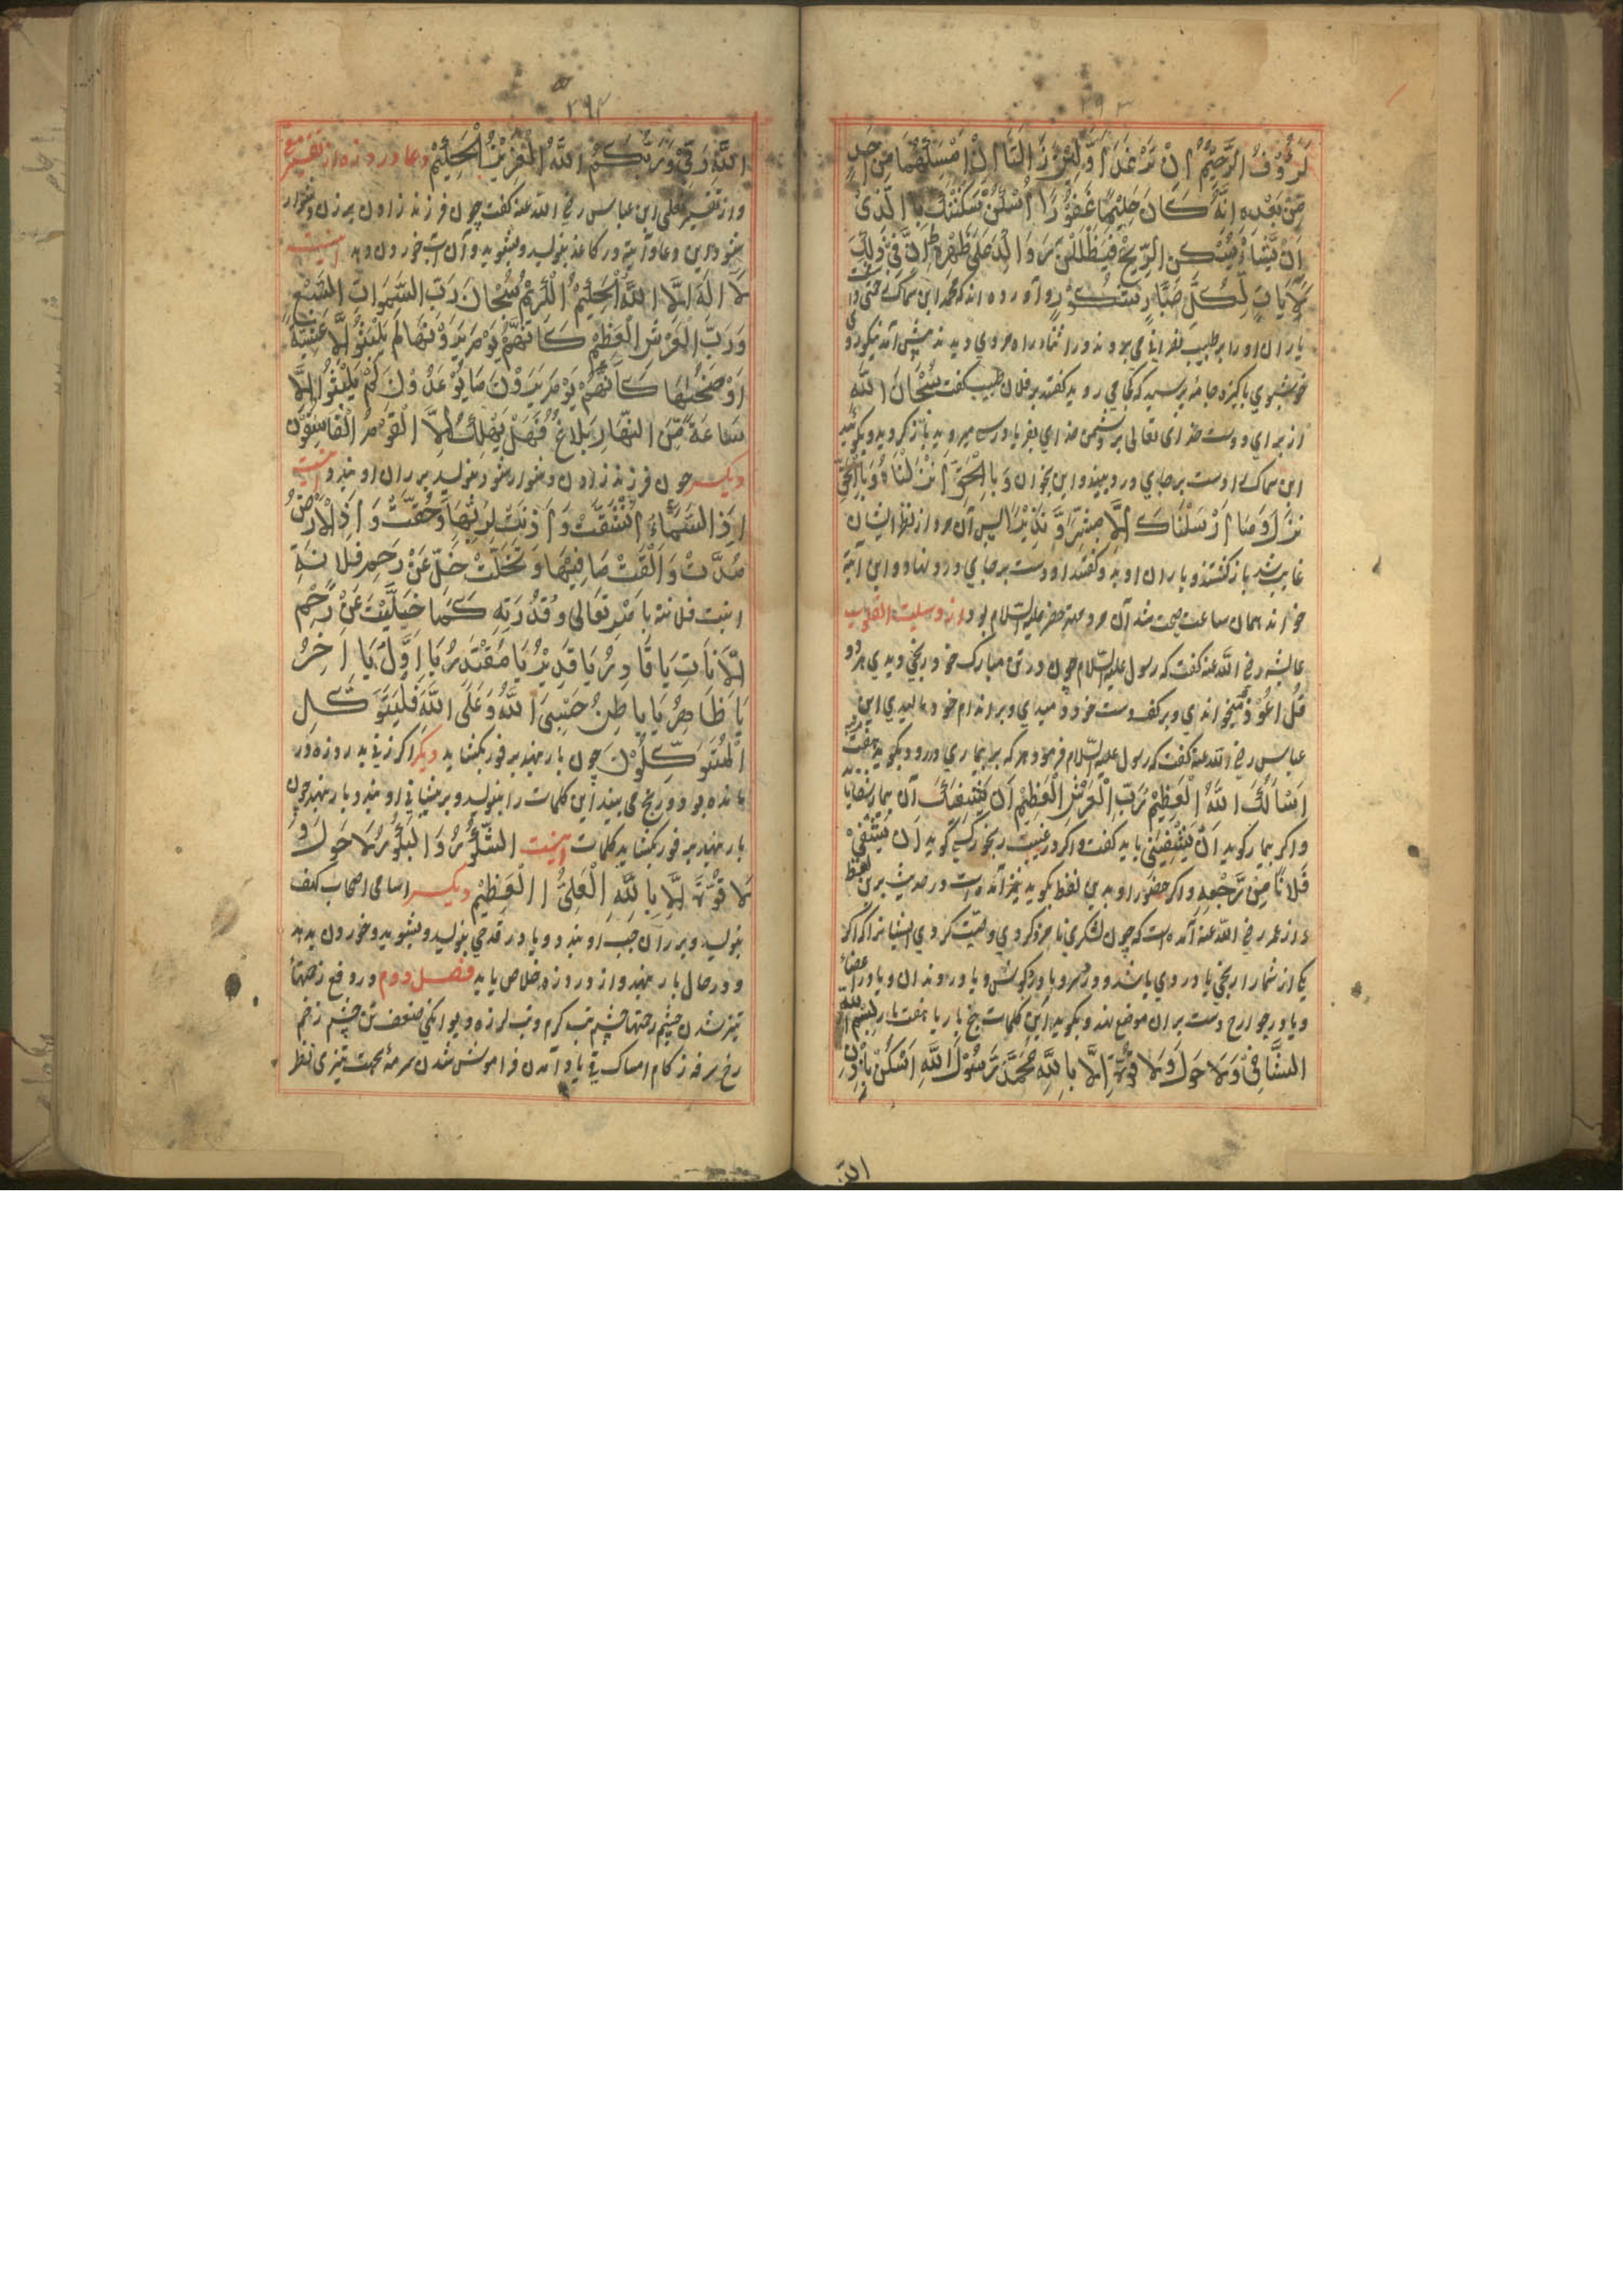 ۲۹۳
لَرَؤُفُ الرَّحِیْمُ اَنْ تَزُوْلَا وَلَئِنْ زَالَتَا اِنْ اَمْسَکَهُمَا مِنْ اَحَدٍ
مِّنْ بَعْدِهٖ اِنَّهٗ کَانَ حَلِیْمًا غَفُوْرًا اُسْکُنْ سَکَّنْتُكَ بِالَّذِیْ
اِنْ یَّشَأْ یُسْکِنِ الرِّیْحَ فَیَظْلَلْنَ رَوَاکِدَ عَلٰی ظَهْرِهٖ اِنَّ فِیْ ذٰلِكَ
لَاٰیَاتٍ لِّکُلِّ صَبَّارٍ شَکُوْرٍ و آورده اند که محمد ابن سماک خسته
یاران او را بر طبیب نصرانی می بردند در اثناء راه مردی دیدند پیش آمد نیکو رو
خوشبوی پاکیزه جامه پرسید که کجا می روید گفتند بر فلان طبیب گفت سُبْحَانَ اللّٰهِ
از برای دوست خدای تعالی بر دشمن خدای بفریاد رسی میروید باز گردید و بگوئید
ابن سماک را دست بر جای درد بنهد و این بخوان وَبِالْحَقِّ اَنْزَلْنَاهُ وَبِالْحَقِّ
نَزَلَ وَمَا اَرْسَلْنَاكَ اِلَّا مُبَشِّرًا وَّ نَذِیْرًا پس آن مرد از نظر ایشان
غایب شد باز گشتند و یاران او بدو گفتند او دست بر جای درد نهاد و این آیة
خواند همان ساعت صحت شد آن مرد مهتر خضر علیه السلام بود از وسیلت القلوب
عایشه رضی الله عنه گفت که رسول علیه السلام چون در تن مبارک خود رنجی دیدی هر دو
قُلْ اَعُوْذُ میخواندی و بر کف دست خود دمیدی و بر اندام خود مالیدی ابن
عباس رضی الله عنه گفت که رسول علیه السلام فرمود هر که بر بیماری در رود بگوید هفت بار
اَسْاَلُكَ اللّٰهَ الْعَظِیْمَ رَبَّ الْعَرْشِ الْعَظِیْمِ اَنْ یَّشْفِیَكَ آن بیمار شفا یابد
و اگر بیمار گوید اَنْ یَّشْفِیَنِیْ باید گفت و اگر در غیبت رنجور کسی گوید اَنْ یَّشْفِیَ
فُلَانًا مِّنْ وَّجْعِهٖ و اگر حضور او بدین لفظ بگوید نیز آمده است در حدیث برین لفظ
و از عمر رضی الله عنه آمده است که چون لشکری نامزد کردی وصیت کردی ایشانرا که اگر
یکی از شما را رنجی یا دردی باشد و در سر و یا در گوش و یا در دندان و یا در اعضاء
و یا در جوارح دست بر آن موضع نهد و بگوید این کلمات پنج بار یا هفت بار بِسْمِ اللّٰهِ
الشَّافِیْ وَلَا حَوْلَ وَلَا قُوَّةَ اِلَّا بِاللّٰهِ مُحَمَّدٌ رَّسُوْلُ اللّٰهِ اُسْکُنْ بِاِذْنِ
۲۹۴
اللّٰهِ رَبِّیْ وَرَبُّکُمُ اللّٰهُ الْعَزِیْزُ الْحَلِیْمُ دعاء درد زه از تفسیر
و از تفسیر ابن عباس رضی الله عنه گفت چون فرزند زادن بر زن دشوار
شود این دعا و آیة در کاغذ بنویسد و بشوید و آن آب خوردن دهد اینست
لَا اِلٰهَ اِلَّا اللّٰهُ الْحَلِیْمُ الْکَرِیْمُ سُبْحَانَ رَبِّ السَّمٰوَاتِ السَّبْعِ
وَرَبِّ الْعَرْشِ الْعَظِیْمِ کَاَنَّهُمْ یَوْمَ یَرَوْنَهَا لَمْ یَلْبَثُوْا اِلَّا عَشِیَّةً
اَوْ ضُحٰهَا کَاَنَّهُمْ یَوْمَ یَرَوْنَ مَا یُوْعَدُوْنَ لَمْ یَلْبَثُوْا اِلَّا
سَاعَةً مِّنَ النَّهَارِ بَلَاغٌ فَهَلْ یُهْلَكُ اِلَّا الْقَوْمُ الْفَاسِقُوْنَ
دیگر چون فرزند زادن دشوار شود بنویسد بر ران او بندد اینست
اِذَا السَّمَآءُ انْشَقَّتْ وَاَذِنَتْ لِرَبِّهَا وَحُقَّتْ وَاِذَا الْاَرْضُ
مُدَّتْ وَاَلْقَتْ مَا فِیْهَا وَتَخَلَّتْ خَلِّ عَنْ رَحِمِ فلانة
ابنت فلانة بِاَمْرِهٖ تَعَالٰی وَقُدْرَتِهٖ کَمَا خَلَّیْتَ عَنْ رَحِمِ
یَا قَادِرُ یَا قَدِیْرُ یَا مُقْتَدِرُ یَا اَوَّلُ یَا اٰخِرُ
یَا ظَاهِرُ یَا بَاطِنُ حَسْبِیَ اللّٰهُ وَعَلَی اللّٰهِ فَلْیَتَوَکَّلِ
الْمُتَوَکِّلُوْنَ چون بار نهد بر فور بگشاید دیگر اگر زنی بدرد زه در
مانده بود و رنج می بیند این کلمات را بنویسد و بر پیشانی او بندد بار نهد چون
بار نهد بر فور بگشاید کلمات اینست لَا حَوْلَ وَ
لَا قُوَّةَ اِلَّا بِاللّٰهِ الْعَلِیِّ الْعَظِیْمِ دیگر اسامی اصحاب کهف
بنویسد و بر ران چپ او بندد و یا در قدحی بنویسد و بشوید و خوردن بدهد
و در حال بار نهد و از درد زه خلاص یابد فصل دوم در دفع زحمتها
تیز شدن چشم زحمتها چشم تب گرم و تب لرزه دیوانگی ضعف تن چشم زخم
سرفه زکام امساک قی یاد آمدن فراموش شدن سرمه بجهت تیزی نظر